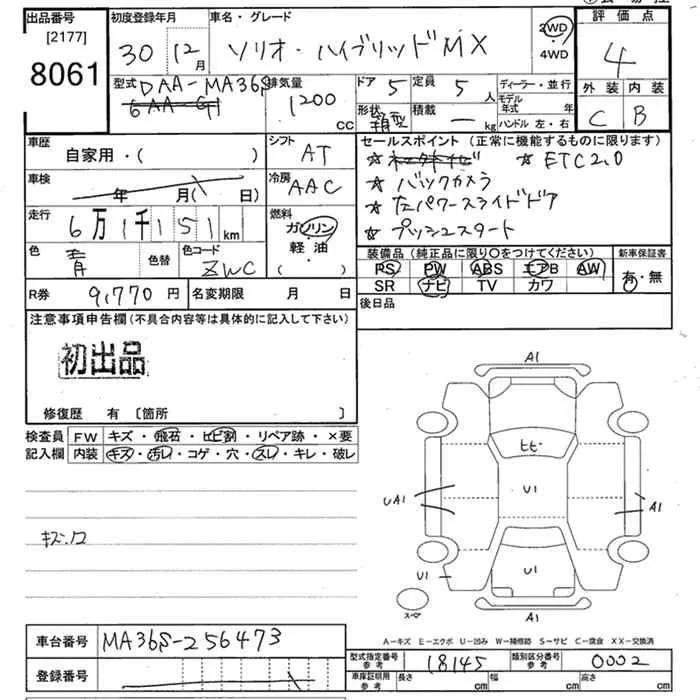 出品番号
[2177]
8061
初度登録年月
30 12月
車名・グレード
ソリオ・ハイブリッドMX
2WD
・
4WD
評価点
4
外装 内装
C B
型式 DAA-MA36S
排気量
1200
CC
ドア 5
定員 5人
形状 箱型
積載 ー kg
ディーラー・並行
モデル年式 年
ハンドル 左・右
車歴
自家用・( )
シフト
AT
車検
年 月( 日)
冷房
AAC
走行
6万1千151km
燃料
ガソリン
・
軽・油
( )
色
青
色替
色コード
ZWC
セールスポイント(正常に機能するものに限ります)
☆ ☆ ETC2.0
☆ バックカメラ
☆ 左パワースライドドア
☆ プッシュスタート
装備品(純正品に限り〇をつけてください)
PS PW ABS エアB AW
SR ナビ TV カワ
新車保証書
有・無
R券 9,770円
名変期限 月 日
後日品
注意事項申告欄(不具合内容等は具体的に記入して下さい)
初出品
修復歴 有〔箇所 〕
検査員 FW キズ・飛石・ヒビ割・リペア跡・×要
記入欄 内装 キズ・汚レ・コゲ・穴・スレ・キレ・破レ
A1
ヒビ
U1
UA1
A1
U1
U1
スペア
A1
A－キズ E－エクボ U－凹み W－補修跡 S－サビ C－腐食 XX－交換済
車台番号 MA36S-256473
登録番号
型式指定番号
参考
18145
類別区分番号
参考
0002
車庫証明用
参考
長さ cm 幅 cm 高さ cm